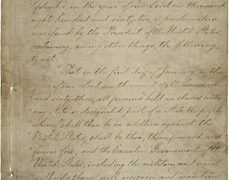 September, in the year of our Lord one thousand
eight hundred and sixty two, a proclamation
was issued by the President of the United States,
containing, among other things, the following,
to wit:
"That on the first day of January, in the
year of our Lord one thousand eight hundred
and sixty-three, all persons held as slaves within
any State or designated part of a State, the people
whereof shall then be in rebellion against the
United States, shall be then, thenceforward, and
forever free; and the Executive Government of the
United States, including the military and naval